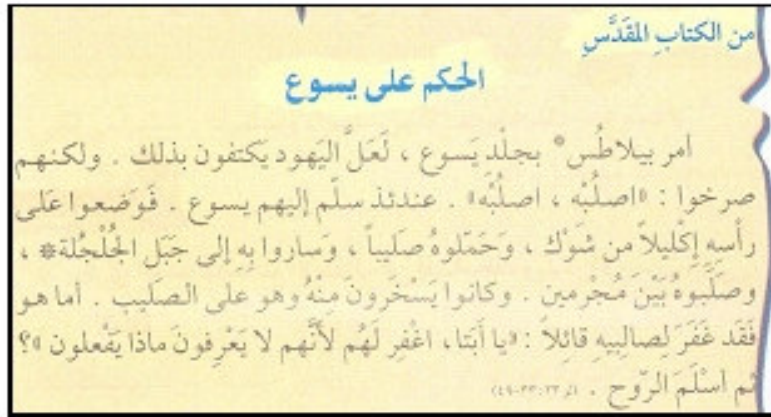 من الكتابِ المقَدَّسِ
الحكم على يسوع
أمر بيلاطُس* بجلْد يَسوع ، لَعَلَّ اليَهود يَكتفون بذلك . ولكنهم
صرخوا : «اصلُبْه ، اصلُبْه» . عندئذ سلّم إليهم يسوع . فَوَضعوا عَلى
رأسِهِ إكْليلاً من شَوْك ، وَحَمَّلوهُ صَليباً ، وَساروا بِهِ إلى جَبَل الجُلْجُلة* ،
وصَلَبوهُ بَيْنَ مُجْرمين . وكانوا يَسْخَرونَ مِنْهُ وهو على الصَليب . أما هو
فَقَد غَفَرَ لِصالِبيهِ قائِلاً : «يا أبَتا، اغْفِر لَهُم لأنَّهم لا يَعْرِفونَ ماذا يَفْعلون »؟
ثم أسْلَمَ الرّوح .